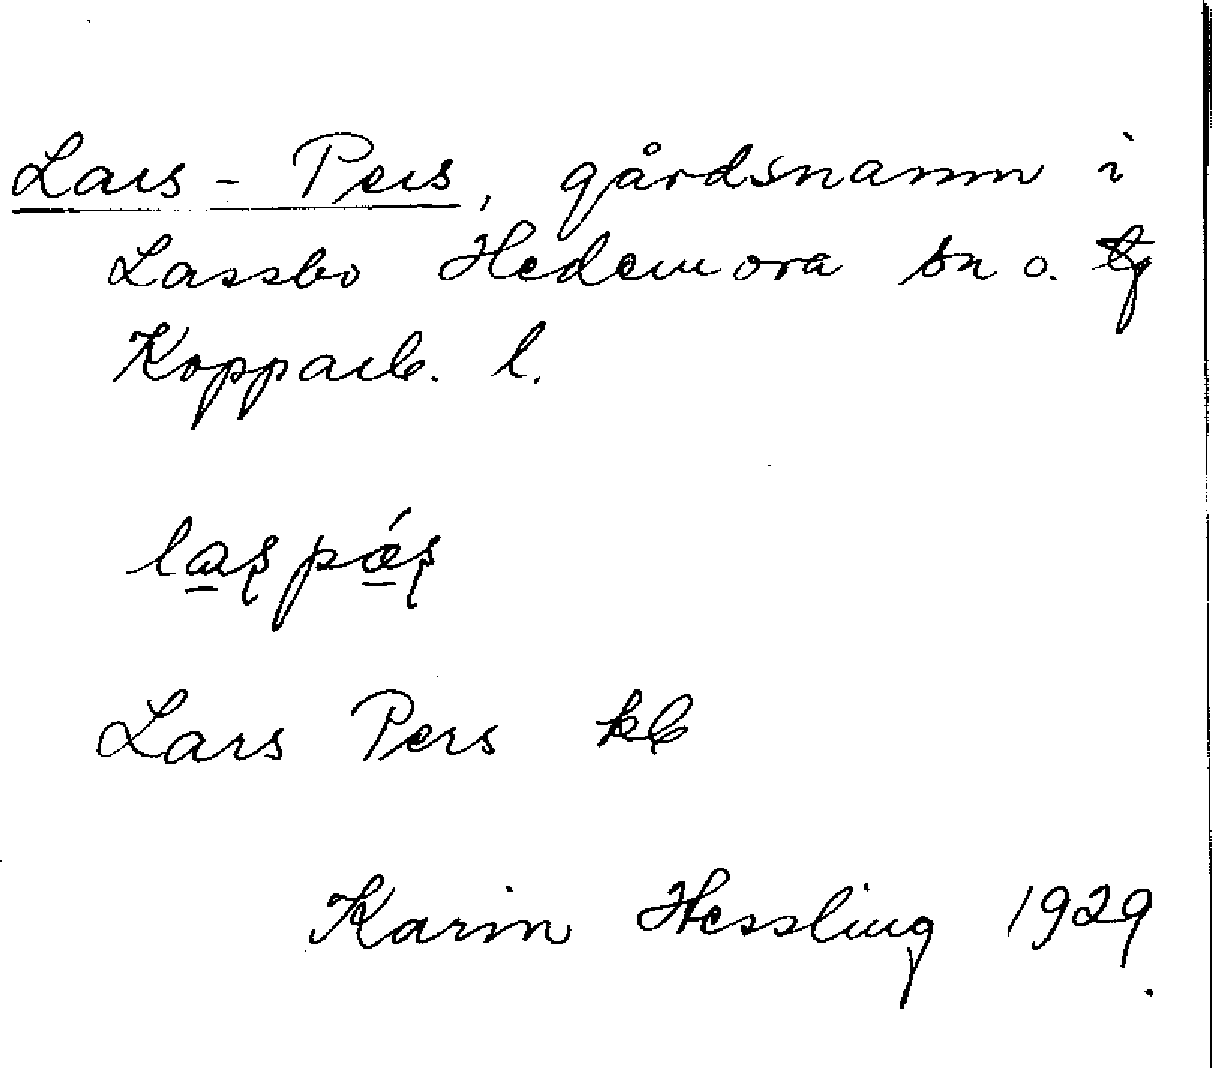 Lars - Pers, gårdsnamn i
Lassbo Hedemora sn o. tg
Kopparb. l.
Lars Pers kb
Karin Hessling 1929.